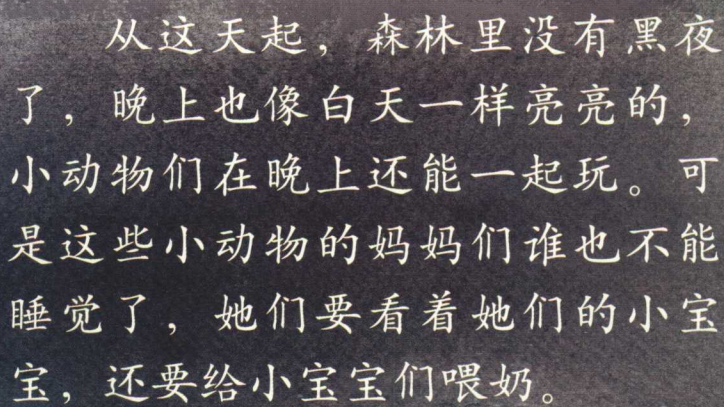 从这天起，森林里没有黑夜
了，晚上也像白天一样亮亮的，
小动物们在晚上还能一起玩。可
是这些小动物的妈妈们谁也不能
睡觉了，她们要看着她们的小宝
宝，还要给小宝宝们喂奶。